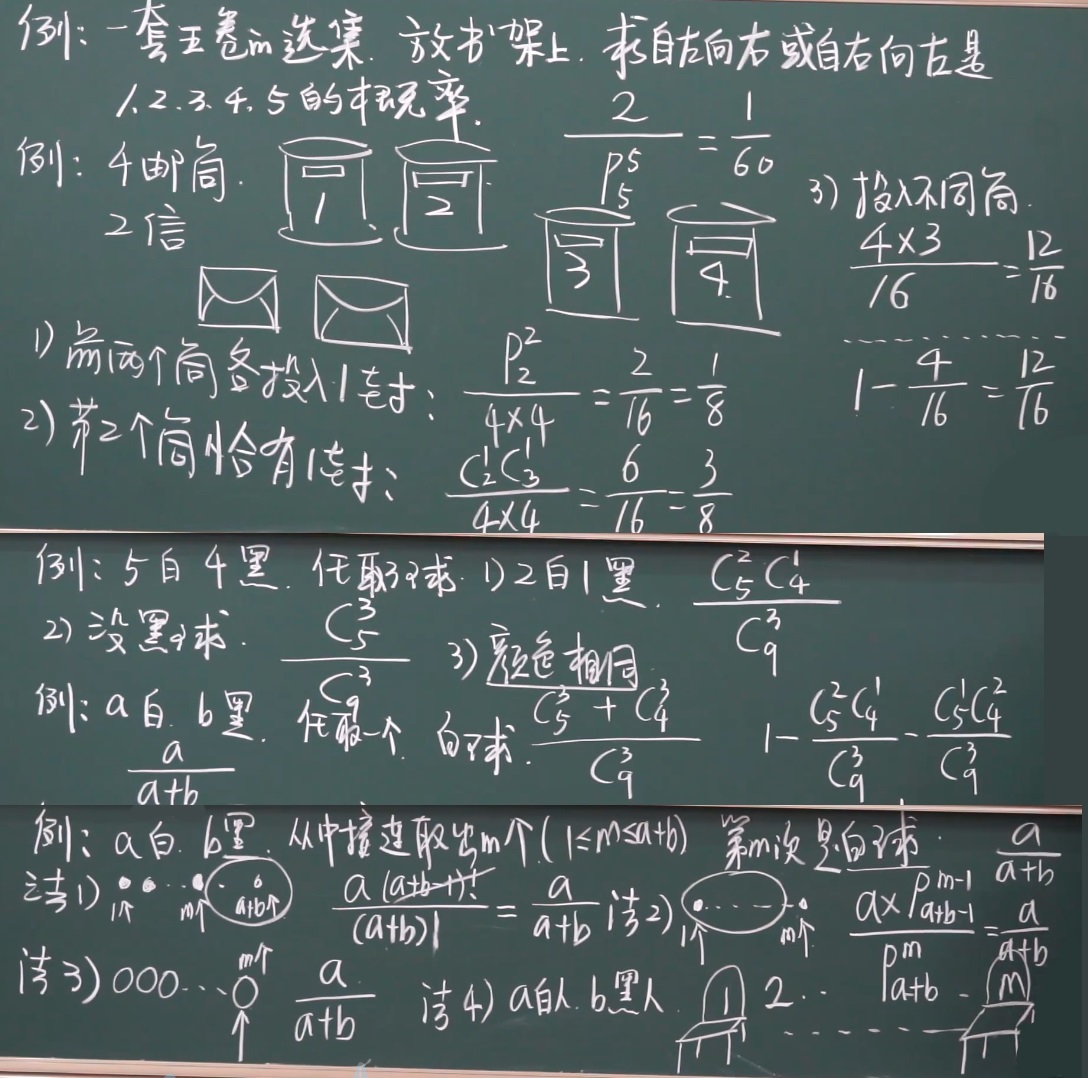 例: 一套五卷的选集. 放书架上. 求自左向右或自右向左是
1.2.3.4.5的概率. 2/P_5^5 = 1/60
例: 4邮筒.
2信
1 2 3 4
1) 前两个筒各投入1封: P_2^2/(4×4) = 2/16 = 1/8
2) 第2个筒恰有1封: C_2^1 C_3^1/(4×4) = 6/16 = 3/8
3) 投入不同筒.
4×3/16 = 12/16
1 - 4/16 = 12/16
例: 5白 4黑. 任取3球. 1) 2白1黑. C_5^2 C_4^1/C_9^3
2) 没黑球. C_5^3/C_9^3
3) 颜色相同 (C_5^3 + C_4^3)/C_9^3 1 - C_5^2 C_4^1/C_9^3 - C_5^1 C_4^2/C_9^3
例: a白. b黑. 任取一个 白球.
a/(a+b)
例: a白. b黑. 从中接连取出m个(1≤m≤a+b) 第m次是白球. a/(a+b)
法1) 1个 m个 a+b个 a(a+b-1)!/(a+b)! = a/(a+b)
法2) 1个 m个 a×P_{a+b-1}^{m-1}/P_{a+b}^m = a/(a+b)
法3) ○○○···○ m个 a/(a+b)
法4) a白人. b黑人 1 2·· m